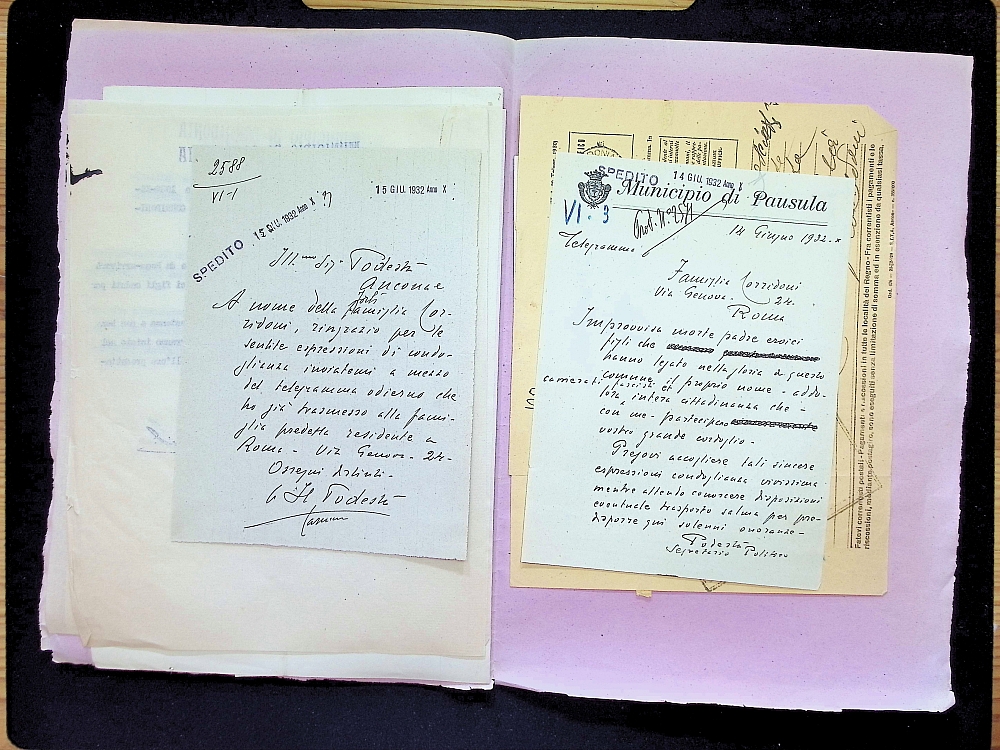 2588
VI-1
15 GIU. 1932 Anno X
SPEDITO 15 GIU. 1932 Anno X
Ill.mo Sig. Podestà
Ancona
A nome della famiglia Cor-
ridoni, ringrazio per le
gentili espressioni di condo-
glianza inviatemi a mezzo
del telegramma odierno che
ho già trasmesso alla fami-
glia predetta residente a
Roma - Via Genova - 24 -
Ossequi distinti -
Il Podestà
SPEDITO 14 GIU. 1932 Anno X
Municipio di Pausula
VI - 3
Prot. N° 2571
14 Giugno 1932 - X
Telegramma
Famiglia Corridoni
Via Genova - 24 -
Roma
Improvvisa morte padre eroici
figli che
hanno legato nella gloria a questo
comune il proprio nome - addo-
camerati fascisti et
lora intera cittadinanza che -
con me - partecipano
vostro grande cordoglio -
Pregovi accogliere tali sincere
espressioni condoglianza vivissima
mentre attendo conoscere disposizioni
eventuale trasporto salma per pre-
disporre qui solenni onoranze -
Podestà
Segretario Politico
Fatevi correntisti postali - Pagamenti e riscossioni in tutte le località del Regno - Fra correntisti i pagamenti e le
riscossioni, mediante postagiro, sono eseguiti senza limitazione di somma ed in esenzione da qualsiasi tassa.